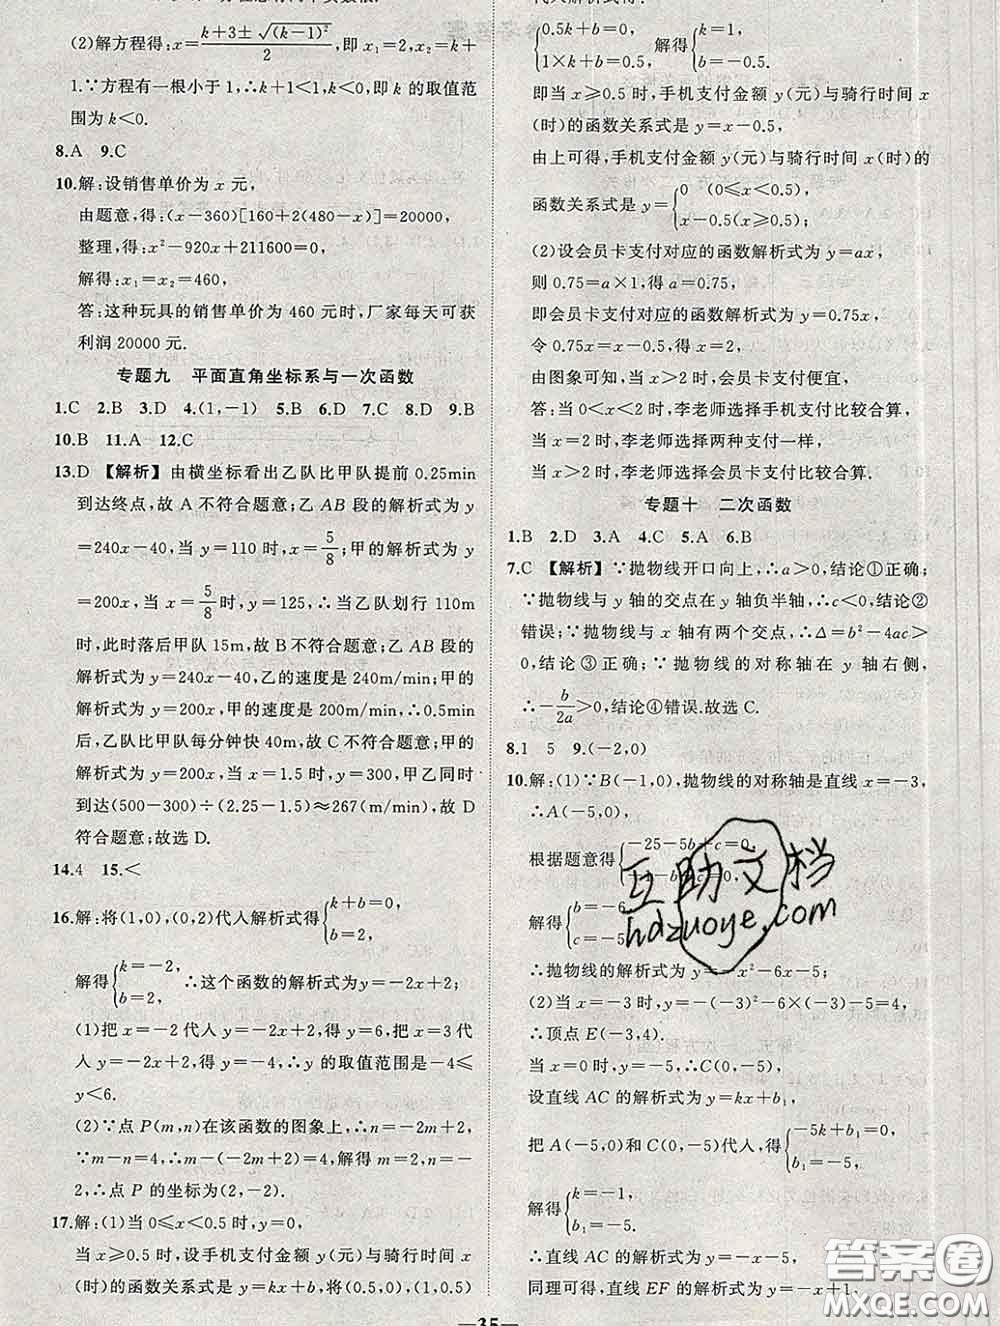 (2)解方程得:x=\frac{k+3±\sqrt{(k-1)^2}}{2},即 x₁=2,x₂=k+
1.∵方程有一根小于 1,∴k+1<1,k<0,即 k 的取值范
围为 k<0.
8.A 9.C
10.解:设销售单价为 x 元,
由题意,得:(x-360)[160+2(480-x)]=20000,
整理,得:x²-920x+211600=0,
解得:x₁=x₂=460,
答:这种玩具的销售单价为 460 元时,厂家每天可获
利润 20000 元.
专题九 平面直角坐标系与一次函数
1.C 2.B 3.D 4.(1,-1) 5.B 6.D 7.C 8.D 9.B
10.B 11.A 12.C
13.D 【解析】由横坐标看出乙队比甲队提前 0.25min
到达终点,故 A 不符合题意;乙 AB 段的解析式为 y
=240x-40,当 y=110 时,x=\frac{5}{8};甲的解析式为 y
=200x,当 x=\frac{5}{8}时,y=125,∴当乙队划行 110m
时,此时落后甲队 15m,故 B 不符合题意;乙 AB 段的
解析式为 y=240x-40,乙的速度是 240m/min;甲的
解析式为 y=200x,甲的速度是 200m/min,∴0.5min
后,乙队比甲队每分钟快 40m,故 C 不符合题意;甲的
解析式为 y=200x,当 x=1.5 时,y=300,甲乙同时
到达(500-300)÷(2.25-1.5)≈267(m/min),故 D
符合题意;故选 D.
14.4 15.<
16.解:将(1,0),(0,2)代人解析式得{k+b=0, b=2,
解得{k=-2, b=2, ∴这个函数的解析式为 y=-2x+2;
(1)把 x=-2 代人 y=-2x+2,得 y=6,把 x=3 代
人 y=-2x+2,得 y=-4,∴y 的取值范围是-4≤
y<6.
(2)∵点 P(m,n)在该函数的图象上,∴n=-2m+2,
∵m-n=4,∴m-(-2m+2)=4,解得 m=2,n=-
2,∴点 P 的坐标为(2,-2).
17.解:(1)当 0≤x<0.5 时,y=0,
当 x≥0.5 时,设手机支付金额 y(元)与骑行时间 x
(时)的函数关系式是 y=kx+b,将(0.5,0),(1,0.5)
代人解析式得:
{0.5k+b=0, 1×k+b=0.5, 解得{k=1, b=-0.5.
即当 x≥0.5 时,手机支付金额 y(元)与骑行时间 x
(时)的函数关系式是 y=x-0.5,
由上可得,手机支付金额 y(元)与骑行时间 x(时)的
函数关系式是 y={0 (0≤x<0.5) x-0.5(x≥0.5);
(2)设会员卡支付对应的函数解析式为 y=ax,
则 0.75=a×1,得 a=0.75,
即会员卡支付对应的函数解析式为 y=0.75x,
令 0.75x=x-0.5,得 x=2,
由图象可知,当 x>2 时,会员卡支付便宜,
答:当 0<x<2 时,李老师选择手机支付比较合算,
当 x=2 时,李老师选择两种支付一样,
当 x>2 时,李老师选择会员卡支付比较合算.
专题十 二次函数
1.B 2.D 3.A 4.C 5.A 6.B
7.C 【解析】∵抛物线开口向上,∴a>0,结论①正确;
∵抛物线与 y 轴的交点在 y 轴负半轴,∴c<0,结论②
错误;∵抛物线与 x 轴有两个交点,∴Δ=b²-4ac>
0,结论③正确;∵抛物线的对称轴在 y 轴右侧,
∴-\frac{b}{2a}>0,结论④错误.故选 C.
8.1 5 9.(-2,0)
10.解:(1)∵B(-1,0),抛物线的对称轴是直线 x=-3,
∴A(-5,0),
根据题意得{-25-5b+c=0, -b+c=0,
解得{b=-6 c=-5
∴抛物线的解析式为 y=-x²-6x-5;
(2)当 x=-3 时,y=-(-3)²-6×(-3)-5=4,
∴顶点 E(-3,4).
当 x=0 时,y=-5,∴C(0,-5),
设直线 AC 的解析式为 y=kx+b₁,
把 A(-5,0)和 C(0,-5)代人,得{-5k+b₁=0, b₁=-5,
解得{k=-1, b₁=-5.
∴直线 AC 的解析式为 y=-x-5,
同理可得:直线 EF 的解析式为 y=-x+1,
—35—
互助文档
hdzuoye.com
答案圈
MXQE.COM